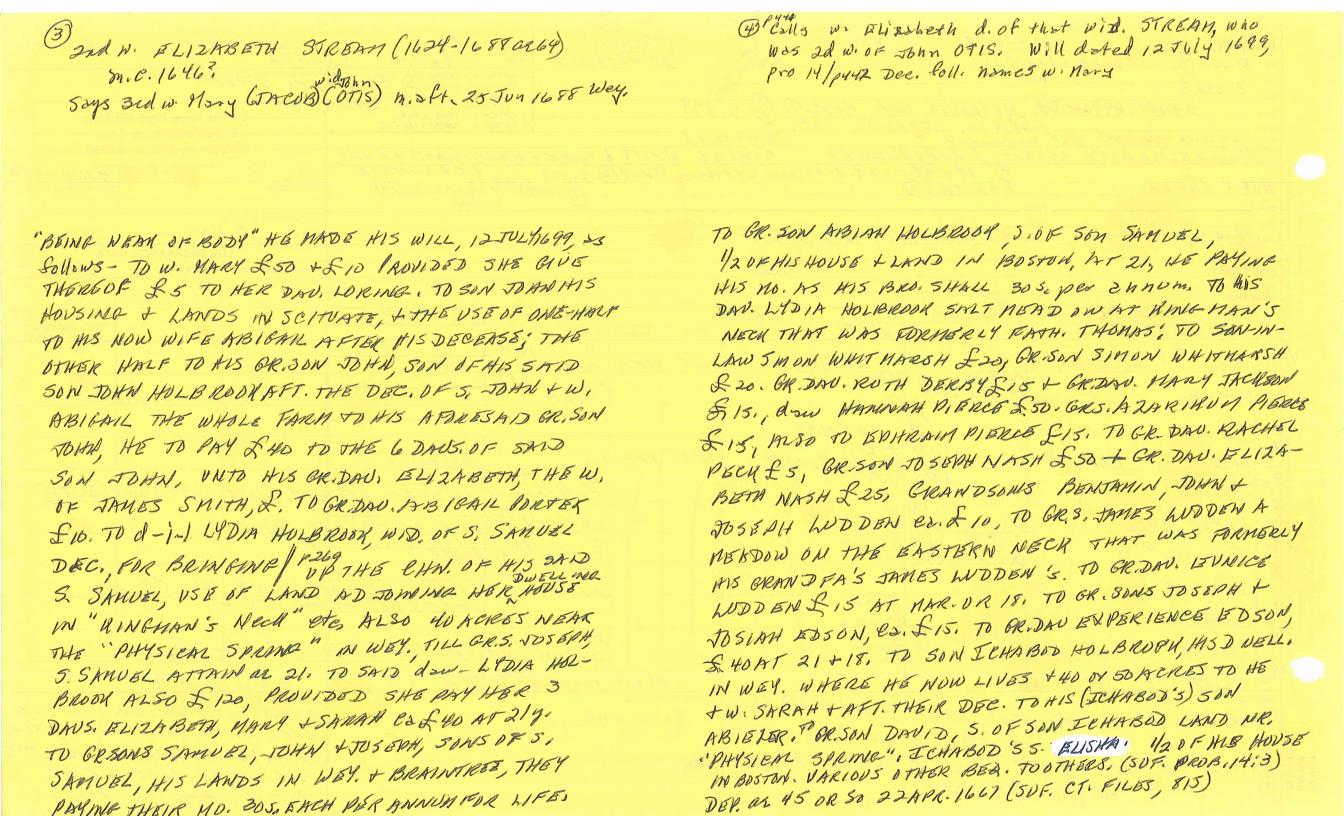 ③
2nd w. ELIZABETH STREAM (1624-1688 ae 64)
m.c. 1646?
wid. John
Says 3rd w. Mary (JACOB) (OTIS) m. aft. 25 Jun 1688 Wey.
"BEING WEAK OF BODY" HE MADE HIS WILL, 12 JULY 1699, as
follows - TO W. MARY £50 + £10 PROVIDED SHE GIVE
THEREOF £5 TO HER DAU. LORING. TO SON JOHN HIS
HOUSING + LANDS IN SCITUATE, + THE USE OF ONE-HALF
TO HIS NOW WIFE ABIGAIL AFTER HIS DECEASE; THE
OTHER HALF TO HIS GR.SON JOHN, SON OF HIS SAID
SON JOHN HOLBROOK AFT. THE DEC. OF S. JOHN + W.
ABIGAIL THE WHOLE FARM TO HIS AFORESAID GR.SON
JOHN, HE TO PAY £40 TO THE 6 DAUS. OF SAID
SON JOHN, UNTO HIS GR.DAU. ELIZABETH, THE W.
OF JAMES SMITH, £. TO GR.DAU. ABIGAIL PORTER
£10. TO d-i-l LYDIA HOLBROOK, WID. OF S. SAMUEL
DEC., FOR BRINGING / p269 UP THE CHN. OF HIS SAID
S. SAMUEL, USE OF LAND ADJOINING HER DWELLING HOUSE
IN "KINGMAN'S Neck" etc, ALSO 40 ACRES NEAR
THE "PHYSICAL SPRING" IN WEY. TILL GR.S. JOSEPH,
S. SAMUEL ATTAIN ae 21. TO SAID daw- LYDIA HOL-
BROOK ALSO £120, PROVIDED SHE PAY HER 3
DAUS. ELIZABETH, MARY + SARAH ea £40 AT 21y.
TO GR.SONS SAMUEL, JOHN + JOSEPH, SONS OF S.
SAMUEL, HIS LANDS IN WEY. + BRAINTREE, THEY
PAYING THEIR MO. 30s. EACH PER ANNUM FOR LIFE.
④ p446 Calls w. Elizabeth d. of that wid. STREAM, who
was 2d w. OF John OTIS. Will dated 12 July 1699,
pro 14/p442 Dec. foll. names w. Mary
TO GR.SON ABIAH HOLBROOK, S. OF SON SAMUEL,
1/2 OF HIS HOUSE + LAND IN BOSTON, AT 21, HE PAYING
HIS MO. AS HIS BRO. SHALL 30s. per annum. TO his
DAU. LYDIA HOLBROOK SALT MEADOW AT KINGMAN'S
NECK THAT WAS FORMERLY FATH. THOMAS'; TO SON-IN-
LAW SIMON WHITMARSH £20, GR.SON SIMON WHITMARSH
£20. GR.DAU. RUTH DERBY £15 + GR.DAU. MARY JACKSON
£15., daw HANNAH PIERCE £50. GRS. AZARIHUM PIERCE
£15, ALSO TO EPHRAIM PIERCE £15. TO GR.DAU. RACHEL
PECK £5, GR.SON JOSEPH NASH £50 + GR.DAU. ELIZA-
BETH NASH £25, GRANDSONS BENJAMIN, JOHN +
JOSEPH LUDDEN ea. £10, TO GR.S. JAMES LUDDEN A
MEADOW ON THE EASTERN NECK THAT WAS FORMERLY
HIS GRANDFA'S JAMES LUDDEN'S. TO GR.DAU. EUNICE
LUDDEN £15 AT MAR. OR 18. TO GR.SONS JOSEPH +
JOSIAH EDSON, ea. £15. TO GR.DAU EXPERIENCE EDSON,
£40 AT 21 + 18. TO SON ICHABOD HOLBROOK, HIS DWELL.
IN WEY. WHERE HE NOW LIVES + 40 OR 50 ACRES TO HE
+ W. SARAH + AFT. THEIR DEC. TO HIS (ICHABOD'S) SON
ABIEZER. TO GR.SON DAVID, S. OF SON ICHABOD LAND NR.
"PHYSICAL SPRING". ICHABOD'S S. ELISHA. 1/2 OF HIS HOUSE
IN BOSTON. VARIOUS OTHER BEQ. TO OTHERS. (SUF. PROB. 14:3)
DEP. ae 45 OR SO 22 APR. 1667 (SUF. CT. FILES, 815)